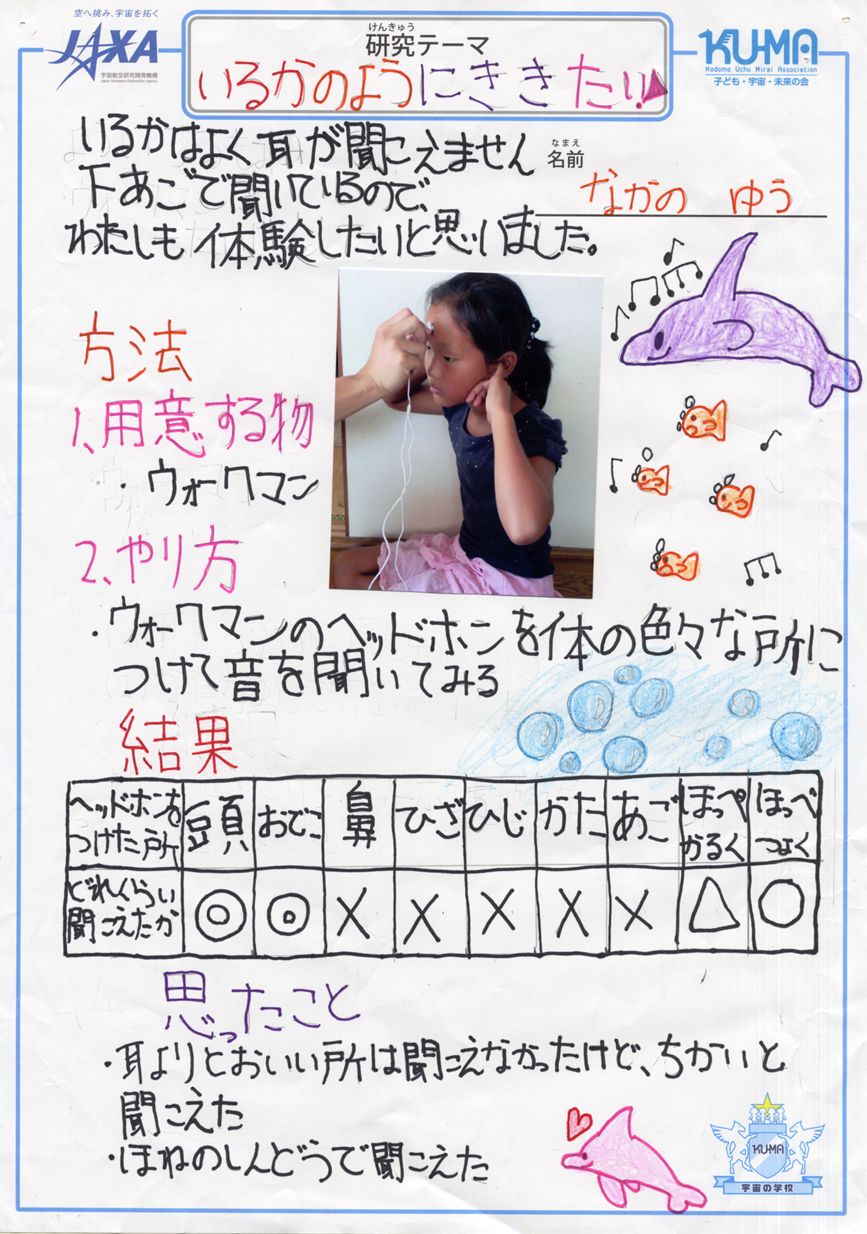 空へ挑み、宇宙を拓く
JAXA
宇宙航空研究開発機構
Japan Aerospace Exploration Agency
けんきゅう
研究テーマ
いるかのようにききたい!
KU-MA
Kodomo Uchu Mirai Association
子ども・宇宙・未来の会
いるかはよく耳が聞こえません
下あごで聞いているので、
わたしも体験したいと思いました。
なまえ
名前
なかの ゆう
方法
1、用意する物
・ウォークマン
2、やり方
・ウォークマンのヘッドホンを体の色々な所に
つけて音を聞いてみる
結果
ヘッドホンをつけた所 頭 おでこ 鼻 ひざ ひじ かた あご ほっぺかるく ほっぺつよく
どれくらい聞こえたか ◎ ◎ X X X X X △ ○
思ったこと
・耳よりとおいい所は聞こえなかったけど、ちかいと
聞こえた
・ほねのしんどうで聞こえた
KU-MA
宇宙の学校